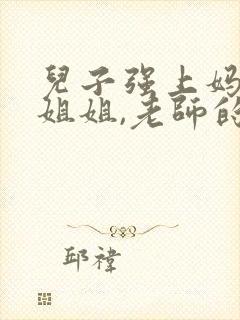 兒子强上妈
姐姐,老師的
邱褘